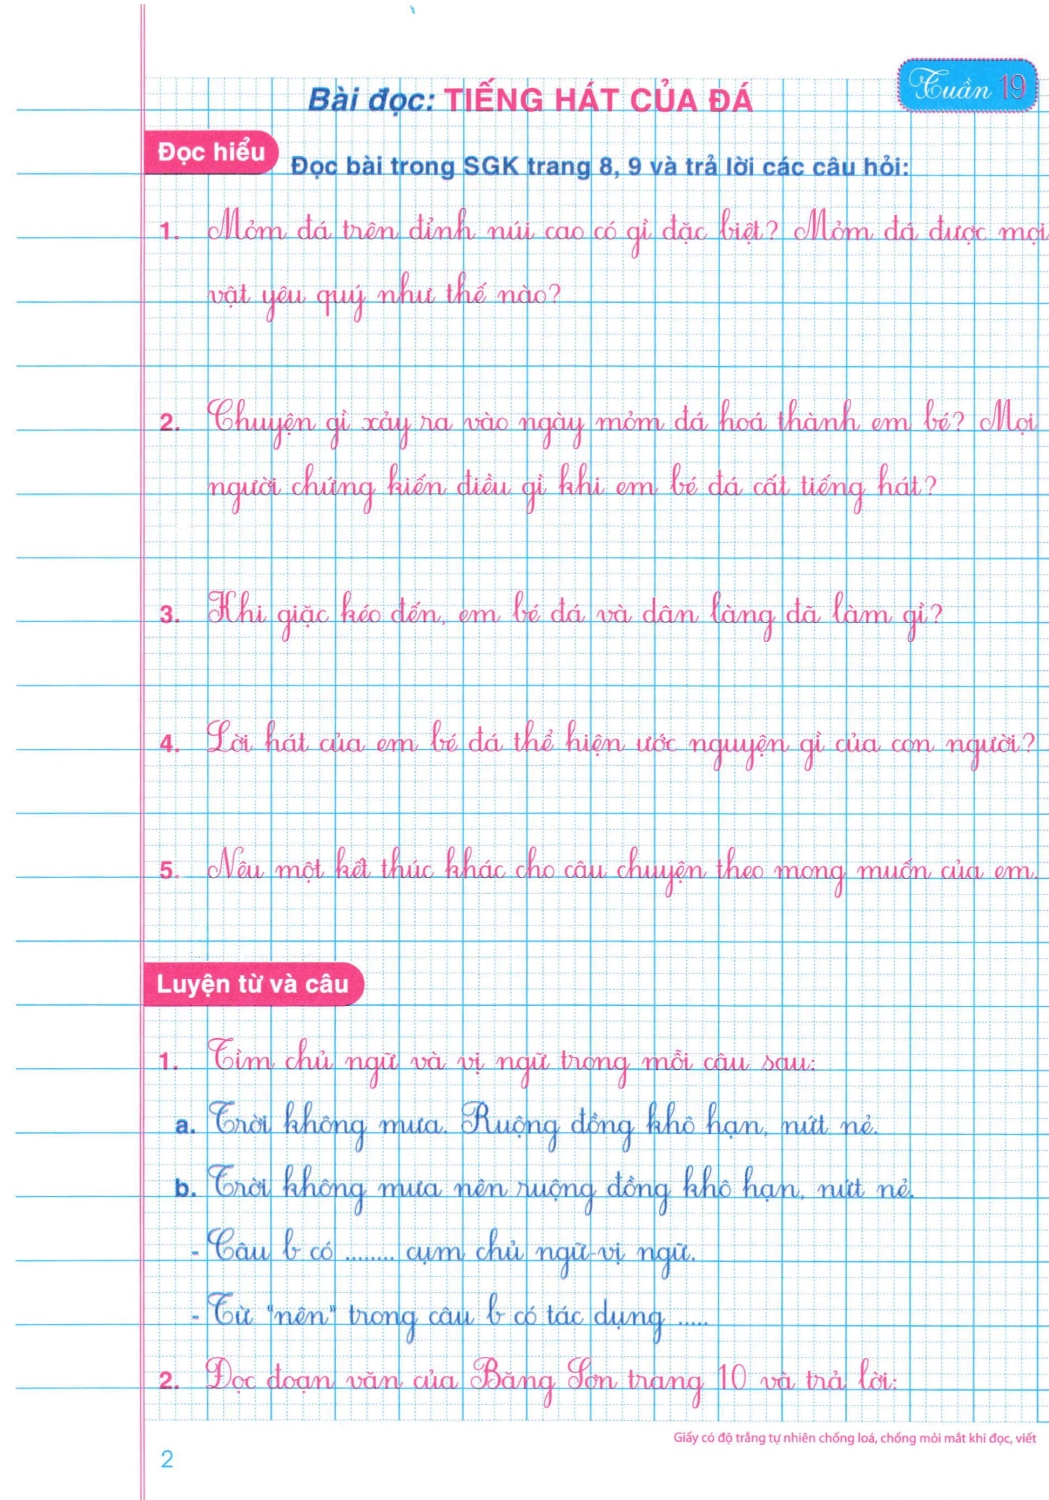 Tuần 19
Bài đọc: TIẾNG HÁT CỦA ĐÁ
Đọc hiểu
Đọc bài trong SGK trang 8, 9 và trả lời các câu hỏi:
1. Mỏm đá trên đỉnh núi cao có gì đặc biệt? Mỏm đá được mọi
vật yêu quý như thế nào?
2. Chuyện gì xảy ra vào ngày mỏm đá hoá thành em bé? Mọi
người chứng kiến điều gì khi em bé đá cất tiếng hát?
3. Khi giặc kéo đến, em bé đá và dân làng đã làm gì?
4. Lời hát của em bé đá thể hiện ước nguyện gì của con người?
5. Nêu một kết thúc khác cho câu chuyện theo mong muốn của em.
Luyện từ và câu
1. Tìm chủ ngữ và vị ngữ trong mỗi câu sau:
a. Trời không mưa. Ruộng đồng khô hạn, nứt nẻ.
b. Trời không mưa nên ruộng đồng khô hạn, nứt nẻ.
- Câu b có ........ cụm chủ ngữ-vị ngữ.
- Từ "nên" trong câu b có tác dụng .....
2. Đọc đoạn văn của Băng Sơn trang 10 và trả lời:
Giấy có độ trắng tự nhiên chống loá, chống mỏi mắt khi đọc, viết
2